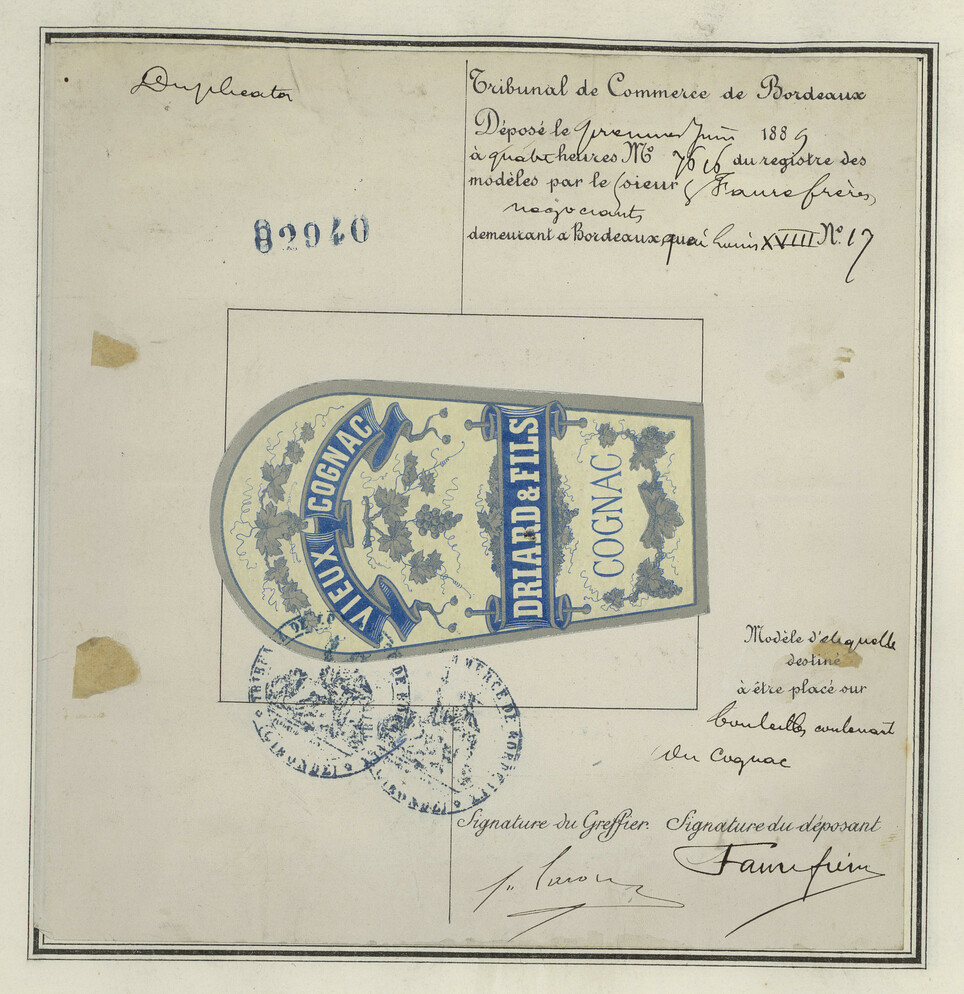 Duplicata
82940
Tribunal de Commerce de Bordeaux
Déposé le premier Juin 1889
à quatre heures Nº 7616 du registre des
modèles par le sieurs Faure frères,
negociants
demeurant a Bordeaux quai Louis XVIII Nº 17
VIEUX COGNAC
DRIARD & FILS
COGNAC
Modèle d'etiquette
destiné
à être placé sur
bouteilles contenant
du Cognac
COMMERCE DE BORDEAUX
(GIRONDE)
Signature du Greffier. Signature du déposant
Faure frères